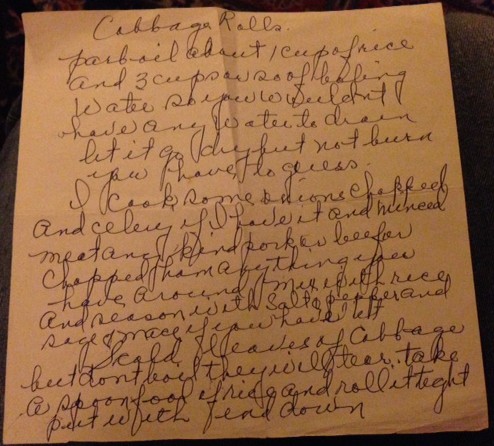 Cabbage Rolls.
parboil about 1 cup of rice
and 3 cups or so of boiling
water so you wouldn't
have any water to drain
let it go dry but not burn
you have to guess.
I cook some onions chopped
and celery if I have it and minced
meat any kind pork or beef or
chopped ham anything you
have around mix with rice
and season with salt & pepper and
sage & mace if you have it
Scald leaves of Cabbage
but dont boil they will tear, take
a spoon of rice and roll it tight
put with end down